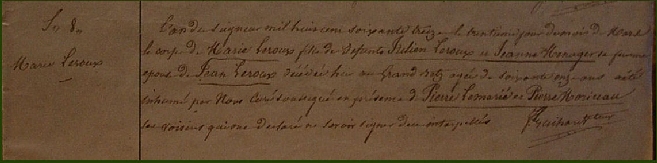 Sr 8e
Marie Leroux
L'an du Seigneur mil huit cent soixante treize le trentième jour du mois de Mars
le corps de Marie Leroux fille de defunts Julien Leroux et Jeanne Menager de
épouse de Jean Leroux décédée hier au Grand agée de soixante onze ans a été
inhumé par Nous Curé soussigné en présence de Pierre Lemarié et Pierre
ses voisins qui ont déclaré ne savoir signer de ce interpellés